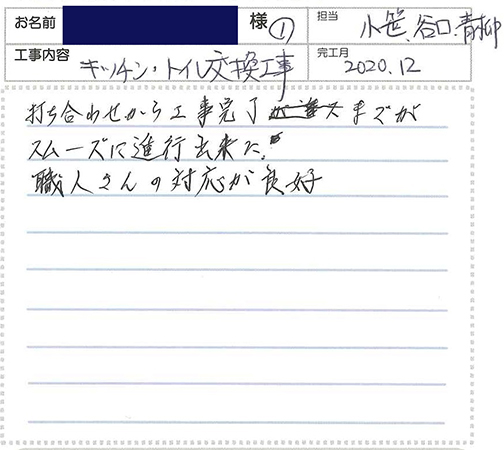 お名前 様 ① 担当 小笹、谷口、青柳
工事内容 キッチン・トイレ交換工事 完工月 2020.12
打ち合わせから工事完了までが
スムーズに進行出来た。
職人さんの対応が良好